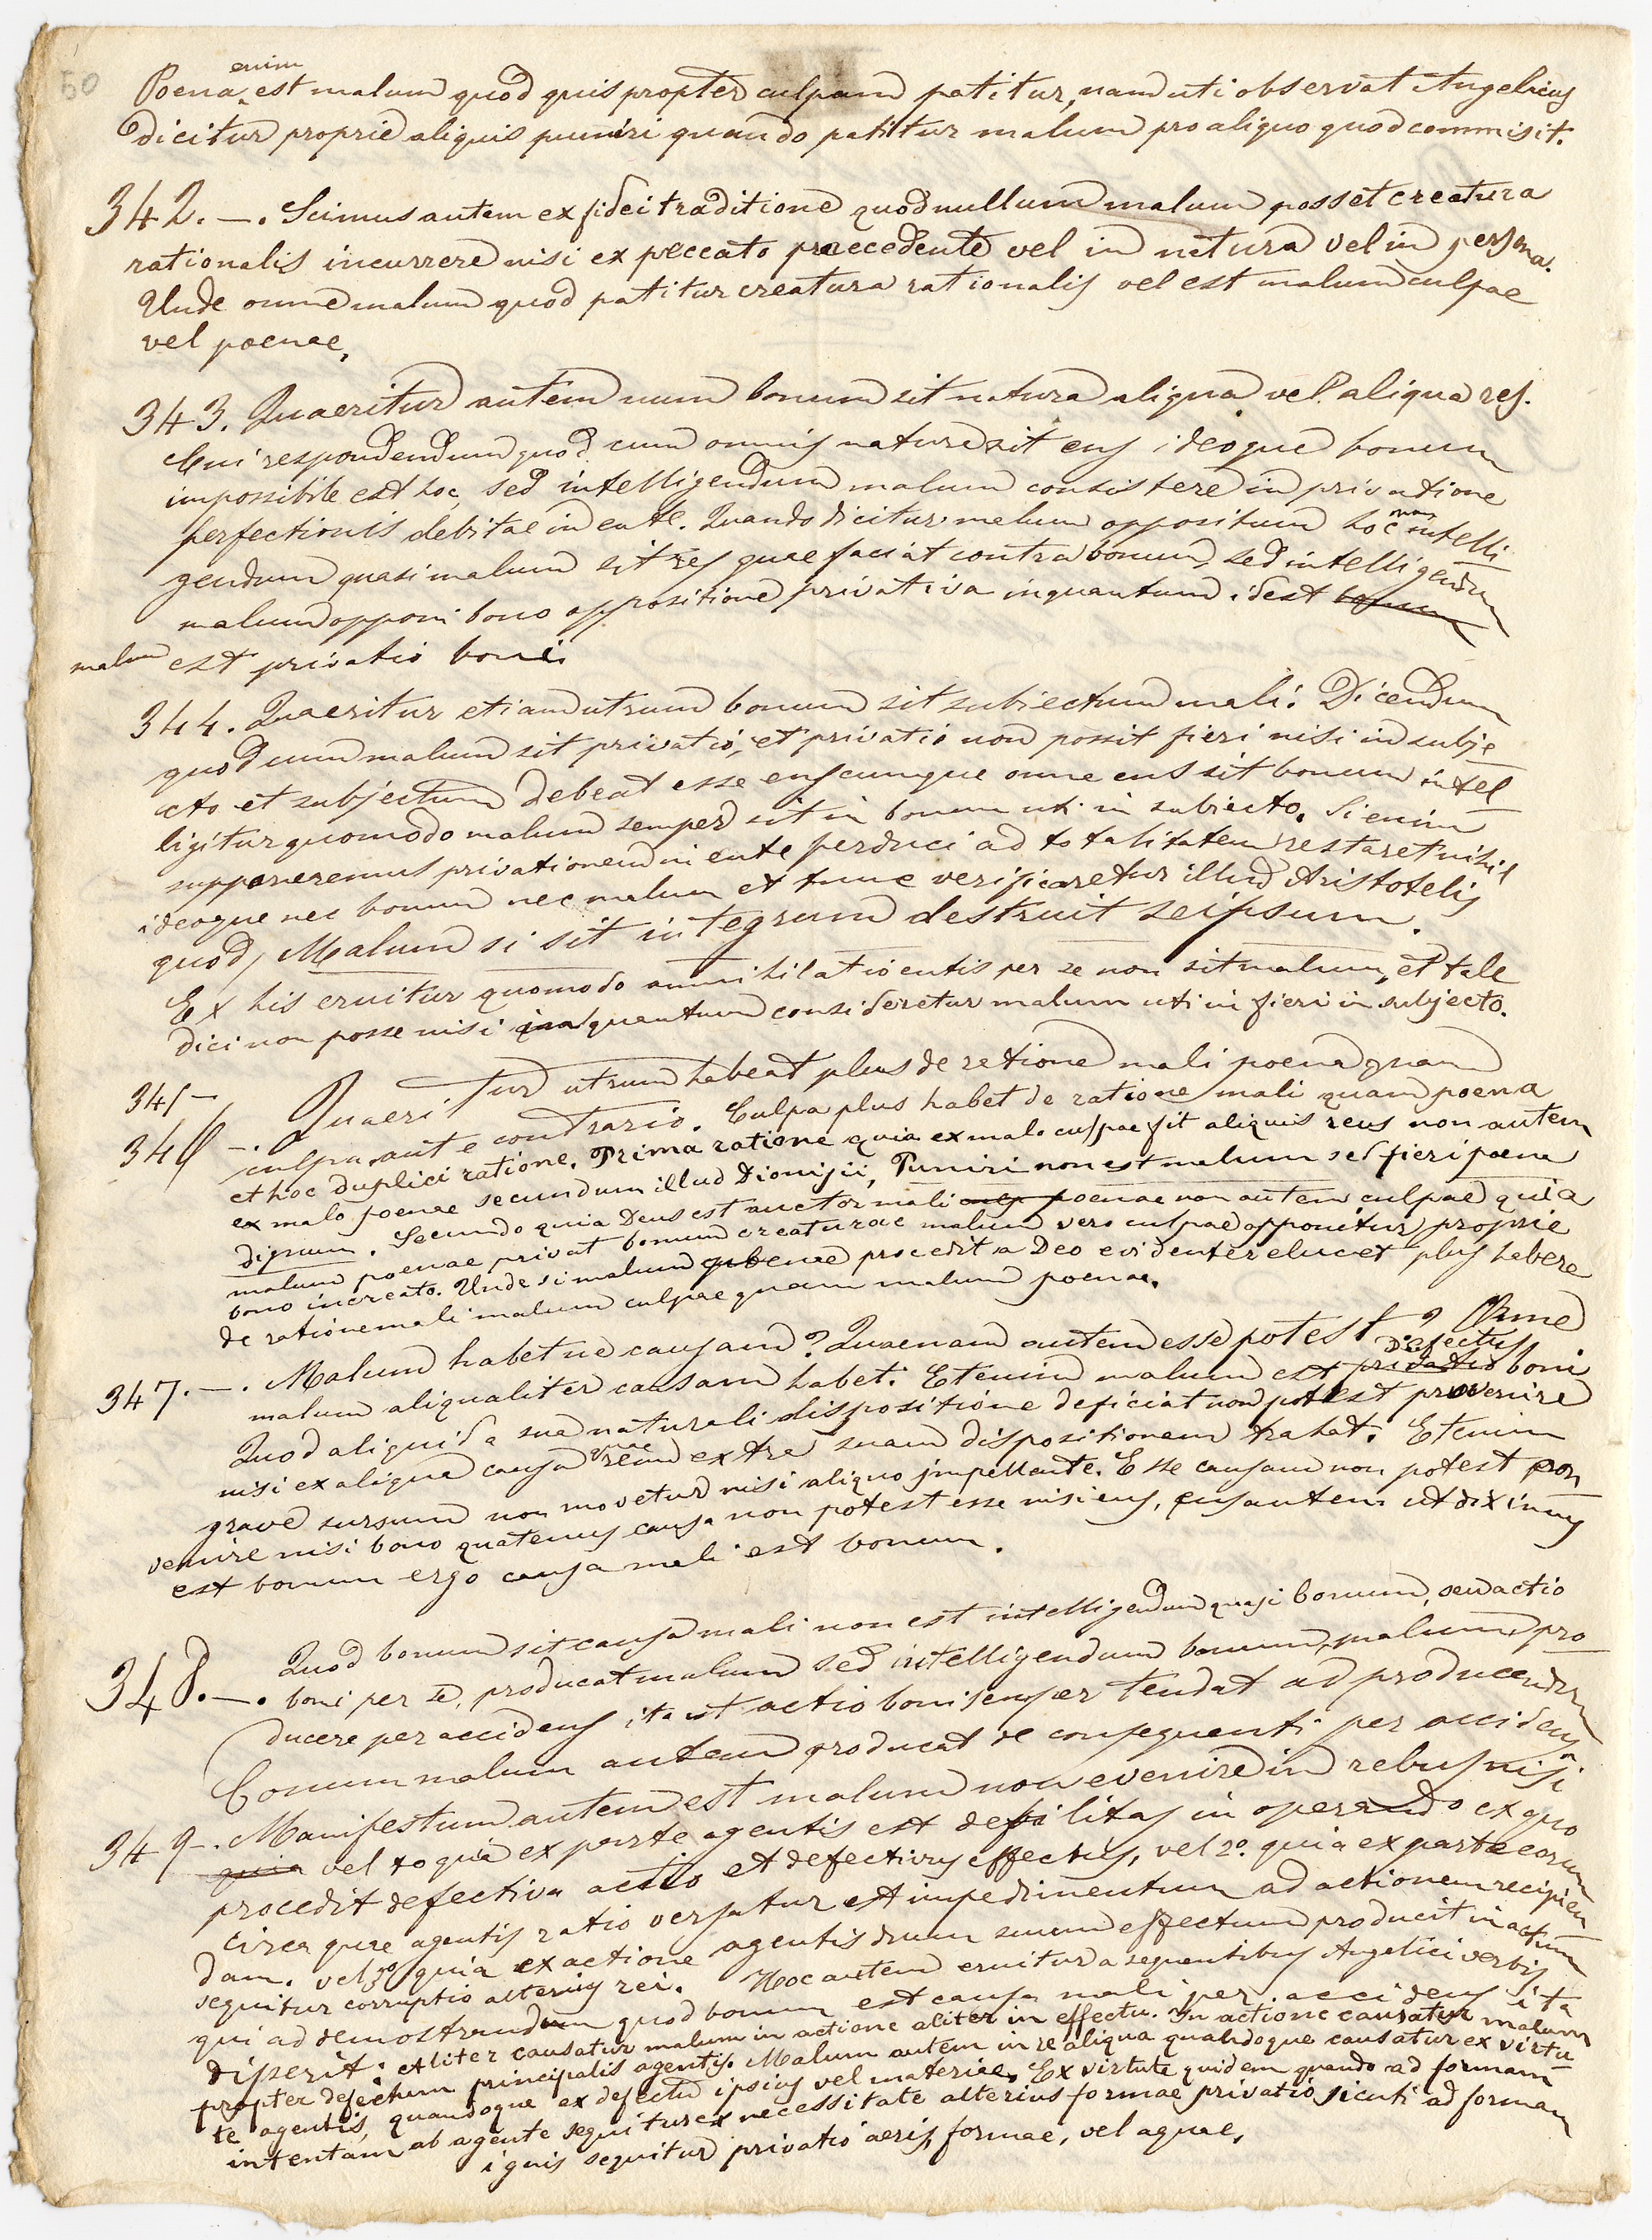 60
Poena enim est malum quod quis propter culpam patitur, nam uti observat Angelicus
dicitur proprie aliquis puniri quando patitur malum pro aliquo quod commisit.
342. —. Scimus autem ex fidei traditione quod nullum malum posset creatura
rationalis incurrere nisi ex peccato praecedente vel in natura vel in persona.
Unde omne malum quod patitur creatura rationalis vel est malum culpae
vel poenae,
343. Quaeritur autem num bonum sit natura aliqua vel aliqua res.
Cui respondendum quod cum omnis natura sit ens ideoque bonum
impossibile est hoc, sed intelligendum malum consistere in privatione
perfectionis debitae in ente. Quando dicitur malum oppositum hoc non intelli
gendum quasi malum sit res quae faciat contra bonum, sed intelligendum
malum opponi bono oppositione privativa inquantum idest bonum
malum est privatio boni
344. Quaeritur etiam utrum bonum sit subiectum mali: Dicendum
quod cum malum sit privatio, et privatio non possit fieri nisi in subje
cto et subjectum debeat esse ens cumque omne ens sit bonum intel
ligitur quomodo malum semper sit in bonum uti in subiecto. Si enim
supponeremus privationem in ente perduci ad totalitatem restaret nihil
ideoque nec bonum nec malum et tunc verificaretur illud Aristotelis
quod, Malum si sit integrum destruit seipsum.
Ex his eruitur quomodo annihilatio entis per se non sit malum, et tale
dici non posse nisi inquantum consideretur malum uti in fieri in subjecto.
345 — Quaeritur utrum habeat plus de ratione mali poena quam
346 —. culpa, aut e contrario. Culpa plus habet de ratione mali quam poena
et hoc duplici ratione. Prima ratione quia ex malo culpae fit aliquis reus non autem
ex malo poenae secundum illud Dionisii, Puniri non est malum sed fieri poena
dignum. Secundo quia Deus est auctor mali poenae non autem culpae quia
malum poenae privat bonum creaturae malum vero culpae opponitur proprie
bono increato. Unde si malum poenae procedit a Deo evidenter elucet plus habere
de ratione mali malum culpae quam malum poenae.
347. —. Malum habetne causam? Quaenam autem esse potest? Omne
malum aliqualiter causam habet. Etenim malum est privatio Defectus boni
Quod aliquid a sua naturali dispositione deficiat non potest provenire
nisi ex aliqua causa quae rem extra suam dispositionem trahat. Etenim
grave sursum non movetur nisi aliquo impellente. Esse causam non potest con
venire nisi bono quatenus causa non potest esse nisi ens, ens autem ut diximus
est bonum ergo causa mali est bonum.
348. —. Quod bonum sit causa mali non est intelligendum quasi bonum, seu actio
boni per se, producat malum sed intelligendum bonum, malum pro
ducere per accidens ita ut actio boni semper tendat ad producendum
bonum malum autem producat de consequenti per accidens
349 —. Manifestum autem est malum non evenire in rebus nisi
quia vel 1o quia ex parte agentis est debilitas in operando ex quo
procedit defectiva actio et defectivus effectus, vel 2o. quia ex parte eorum
circa quae agentis ratio versatur est impedimentum ad actionem recipien
dam. vel 3o quia ex actione agentis dum suum effectum producit in actum
sequitur corruptio alterius rei. Hoc autem eruitur a sequentibus Angelici verbis
qui ad demostrandum quod bonum est causa mali per accidens ita
disserit. Aliter causatur malum in actione aliter in effectu. In actione causatur malum
propter defectum principalis agentis. Malum autem in re aliqua quandoque causatur ex virtu
te agentis, quandoque ex defectu ipsius vel materiae. Ex virtute quidem quando ad formam
intentam ab agente sequitur ex necessitate alterius formae privatio sicuti ad formam
ignis sequitur privatio aeris formae, vel aquae,